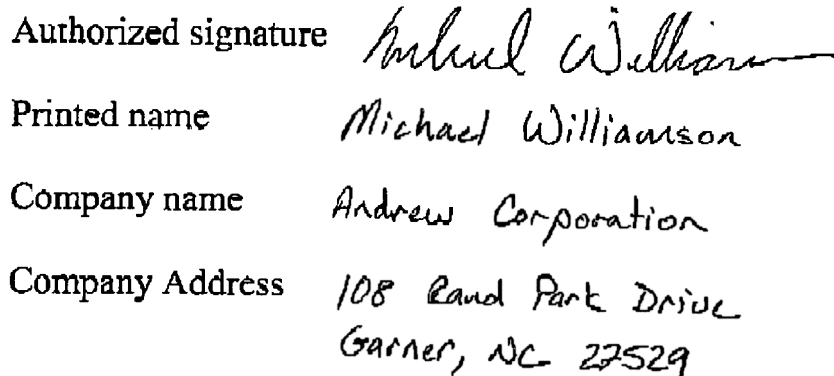 Authorized signature Michael Williamson
Printed name Michael Williamson
Company name Andrew Corporation
Company Address 108 Rand Park Drive
Garner, NC 27529